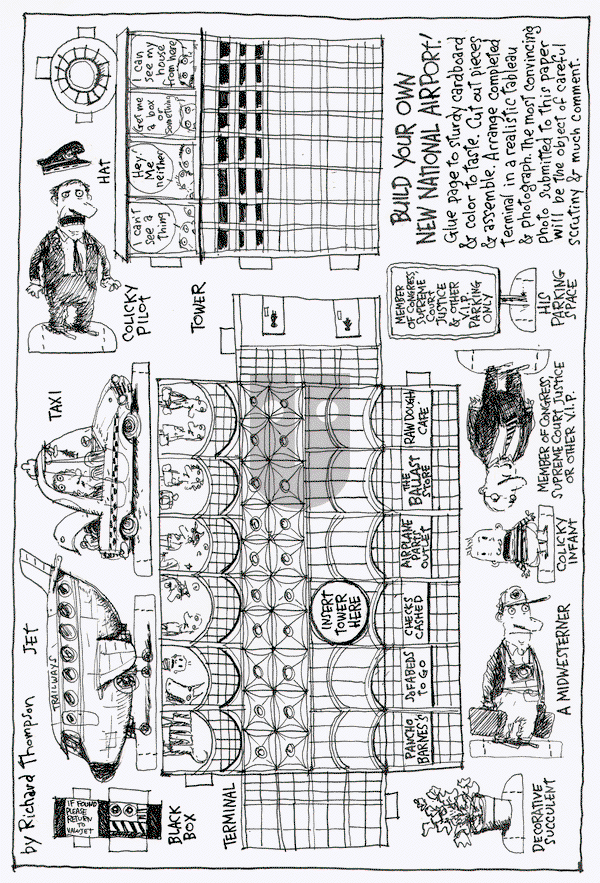 by Richard Thompson
JET
TRAILWAYS
TAXI
COLICKY
PILOT
HAT
BLACK
BOX
IF FOUND
PLEASE
RETURN
TO
VALUJET
TERMINAL
TOWER
I can't
see a
thing
Hey,
Me
neither
Get me
a box
or
something
I can
see my
house
from here
INSERT
TOWER
HERE
PANCHO
BARNES'S
SOFABEDS
TO GO
CHECKS
CASHED
AIRPLANE
PARTS
OUTLET
THE
BALLAST
STORE
RAW DOUGH
CAFE
BUILD YOUR OWN
NEW NATIONAL AIRPORT!
Glue page to sturdy cardboard
& color to taste. Cut out pieces
& assemble. Arrange completed
terminal in a realistic tableau
& photograph. The most convincing
photo submitted to this paper
will be the object of careful
scrutiny & much comment.
DECORATIVE
SUCCULENT
A MIDWESTERNER
COLICKY
INFANT
MEMBER OF CONGRESS,
SUPREME COURT JUSTICE
OR OTHER V.I.P.
MEMBER
OF CONGRESS,
SUPREME
COURT
JUSTICE
& OTHER
V.I.P.
PARKING
ONLY
HIS
PARKING
SPACE